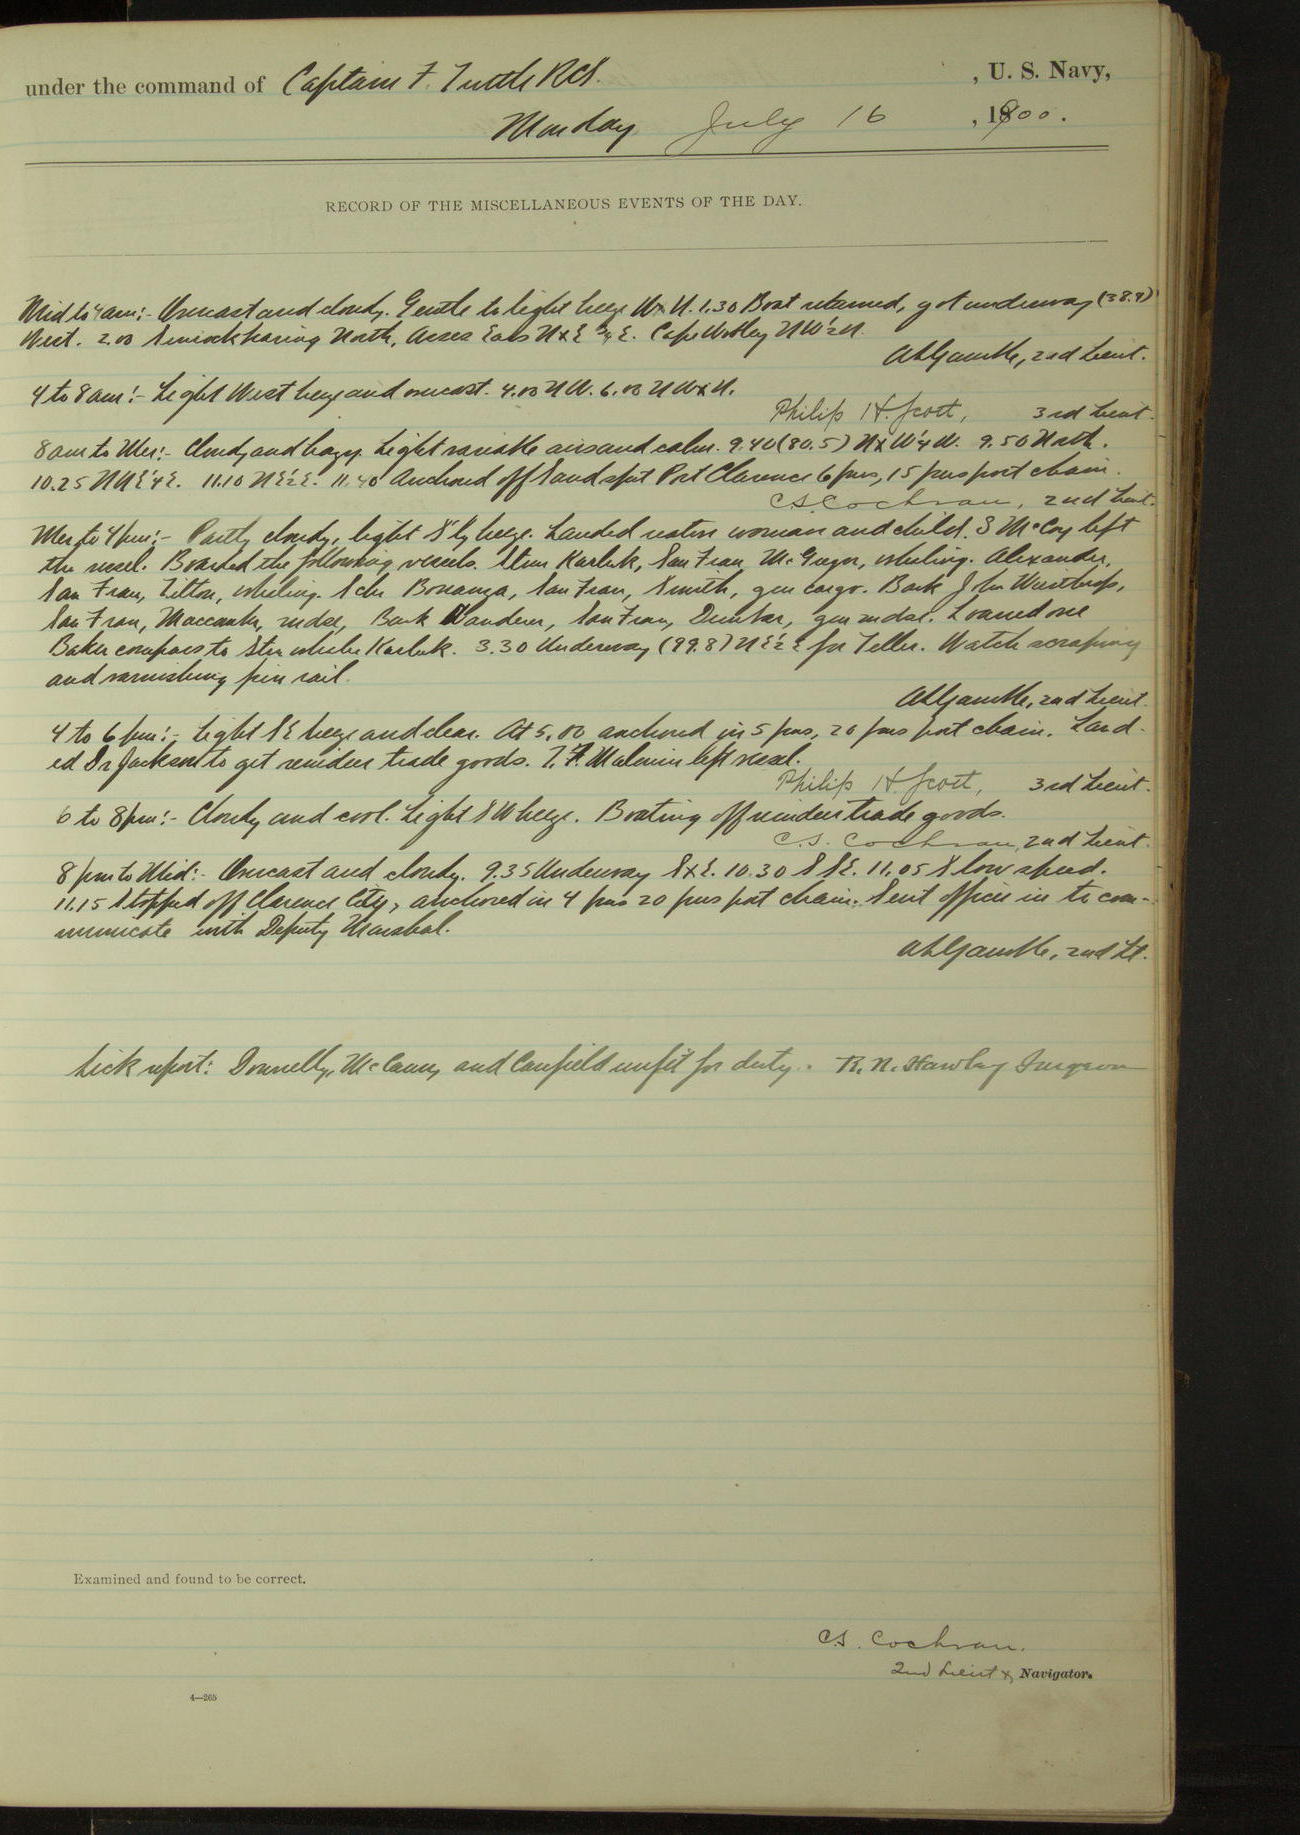 under the command of Captain F. Tuttle RCS. , U. S. Navy,
Monday July 16 , 1900.
RECORD OF THE MISCELLANEOUS EVENTS OF THE DAY.
Mid to 4 am:- Overcast and cloudy. Gentle to light breeze WxN. 1.30 Boat returned, got underway (38.9)
West. 2.00 Sinrock bearing North, Asses Ears NxE ¾ E. Cape Wooley NW½N.
A L Gamble, 2nd Lieut.
4 to 8 am:- Light West breeze and overcast. 4.00 NW. 6.00 NWxN.
Philip H. Scott, 3rd Lieut.
8 am to Mer:- Cloudy and hazy. Light variable airs and calm. 9.40 (80.5) NxW¼W. 9.50 North.
10.25 NNE¼E. 11.10 NE½E. 11.40 Anchored off Sandspit Port Clarence 6 fms, 15 fms port chain.
C.S. Cochran, 2nd Lieut.
Mer to 4 pm:- Partly cloudy, light S'ly breeze. Landed native woman and child. S McCoy left
the vessel. Boarded the following vessels. Stmr Karluk, San Fran, McGregor, whaling. Alexander,
San Fran, Tilton, whaling. Schr Bonanza, San Fran, Smith, gen cargo. Bark John Winthrop,
San Fran, Maccomber, mdse, Bark Wanderer, San Fran, Dunbar, gen mdse. Loaned one
Baker compass to Stm whaler Karluk. 3.30 Underway (99.8) NE½E for Teller. Watch scraping
and varnishing pin rail.
A L Gamble, 2nd Lieut.
4 to 6 pm:- Light SE breeze and clear. At 5.00 anchored in 5 fms, 20 fms port chain. Land-
ed Dr Jackson to get reindeer trade goods. T. F. left vessel.
Philip H. Scott, 3rd Lieut.
6 to 8 pm:- Cloudy and cool. Light SW breeze. Boating off reindeer trade goods.
C. S. Cochran, 2nd Lieut.
8 pm to Mid:- Overcast and cloudy. 9.35 Underway SxE. 10.30 SSE. 11.05 Slow speed.
11.15 Stopped off Clarence City, anchored in 4 fms 20 fms port chain. Sent officer in to com-
municate with Deputy Marshal.
A L Gamble, 2nd Lt.
Sick report: Donnelly, McCann, and Canfield unfit for duty. R. N. Hawley Surgeon
Examined and found to be correct.
C.S. Cochran.
2nd Lieut & Navigator.
4—265